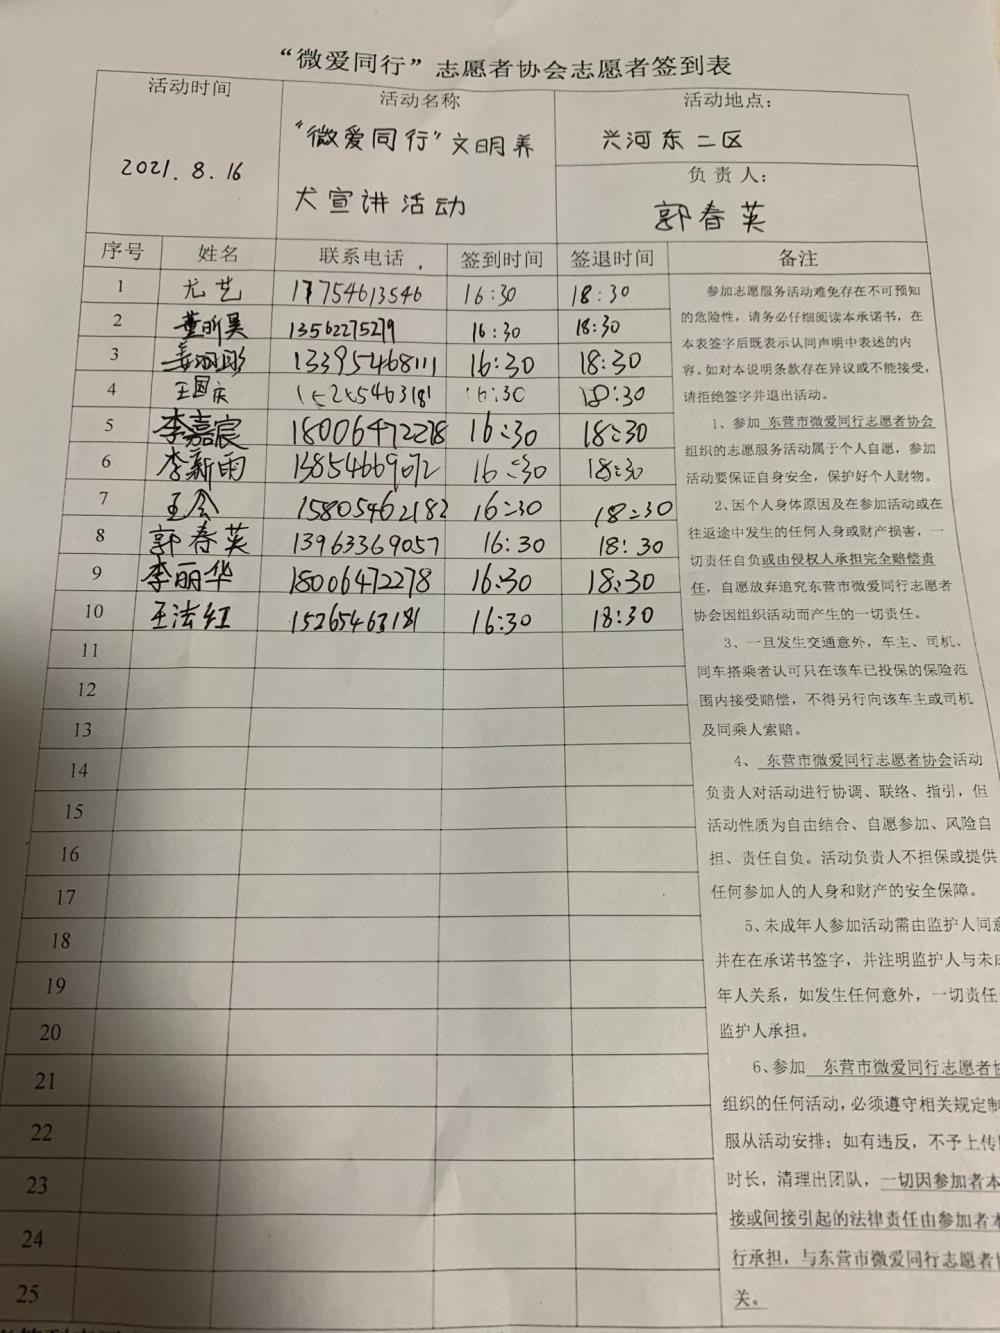 “微爱同行”志愿者协会志愿者签到表
活动时间 活动名称 活动地点：
2021.8.16 “微爱同行”文明养 兴河东二区
犬宣讲活动 负责人：
郭春英
序号 姓名 联系电话 签到时间 签退时间 备注
1 尤艺 17754613546 16:30 18:30
2 董昕昊 13562275279 16:30 18:30
3 13395468111 16:30 18:30
4 王国庆 15265463181 16:30 18:30
5 李嘉宸 18006472278 16:30 18:30
6 李新雨 13854669072 16:30 18:30
7 王会 15805462182 16:30 18:30
8 郭春英 13963369057 16:30 18:30
9 李丽华 18006472278 16:30 18:30
10 王法红 15265463181 16:30 18:30
11
12
13
14
15
16
17
18
19
20
21
22
23
24
25
参加志愿服务活动难免存在不可预知
的危险性，请务必仔细阅读本承诺书，在
本表签字后既表示认同声明中表述的内
容。如对本说明条款存在异议或不能接受，
请拒绝签字并退出活动。
1、参加 东营市微爱同行志愿者协会
组织的志愿服务活动属于个人自愿，参加
活动要保证自身安全，保护好个人财物。
2、因个人身体原因及在参加活动或在
往返途中发生的任何人身或财产损害，一
切责任自负或由侵权人承担完全赔偿责
任，自愿放弃追究东营市微爱同行志愿者
协会因组织活动而产生的一切责任。
3、一旦发生交通意外，车主、司机、
同车搭乘者认可只在该车已投保的保险范
围内接受赔偿，不得另行向该车主或司机
及同乘人索赔。
4、 东营市微爱同行志愿者协会活动
负责人对活动进行协调、联络、指引，但
活动性质为自由结合、自愿参加、风险自
担、责任自负。活动负责人不担保或提供
任何参加人的人身和财产的安全保障。
5、未成年人参加活动需由监护人同意
并在在承诺书签字，并注明监护人与未成
年人关系，如发生任何意外，一切责任
监护人承担。
6、参加 东营市微爱同行志愿者协
组织的任何活动，必须遵守相关规定制
服从活动安排；如有违反，不予上传
时长，清理出团队，一切因参加者本
接或间接引起的法律责任由参加者本
行承担，与东营市微爱同行志愿者协
关。